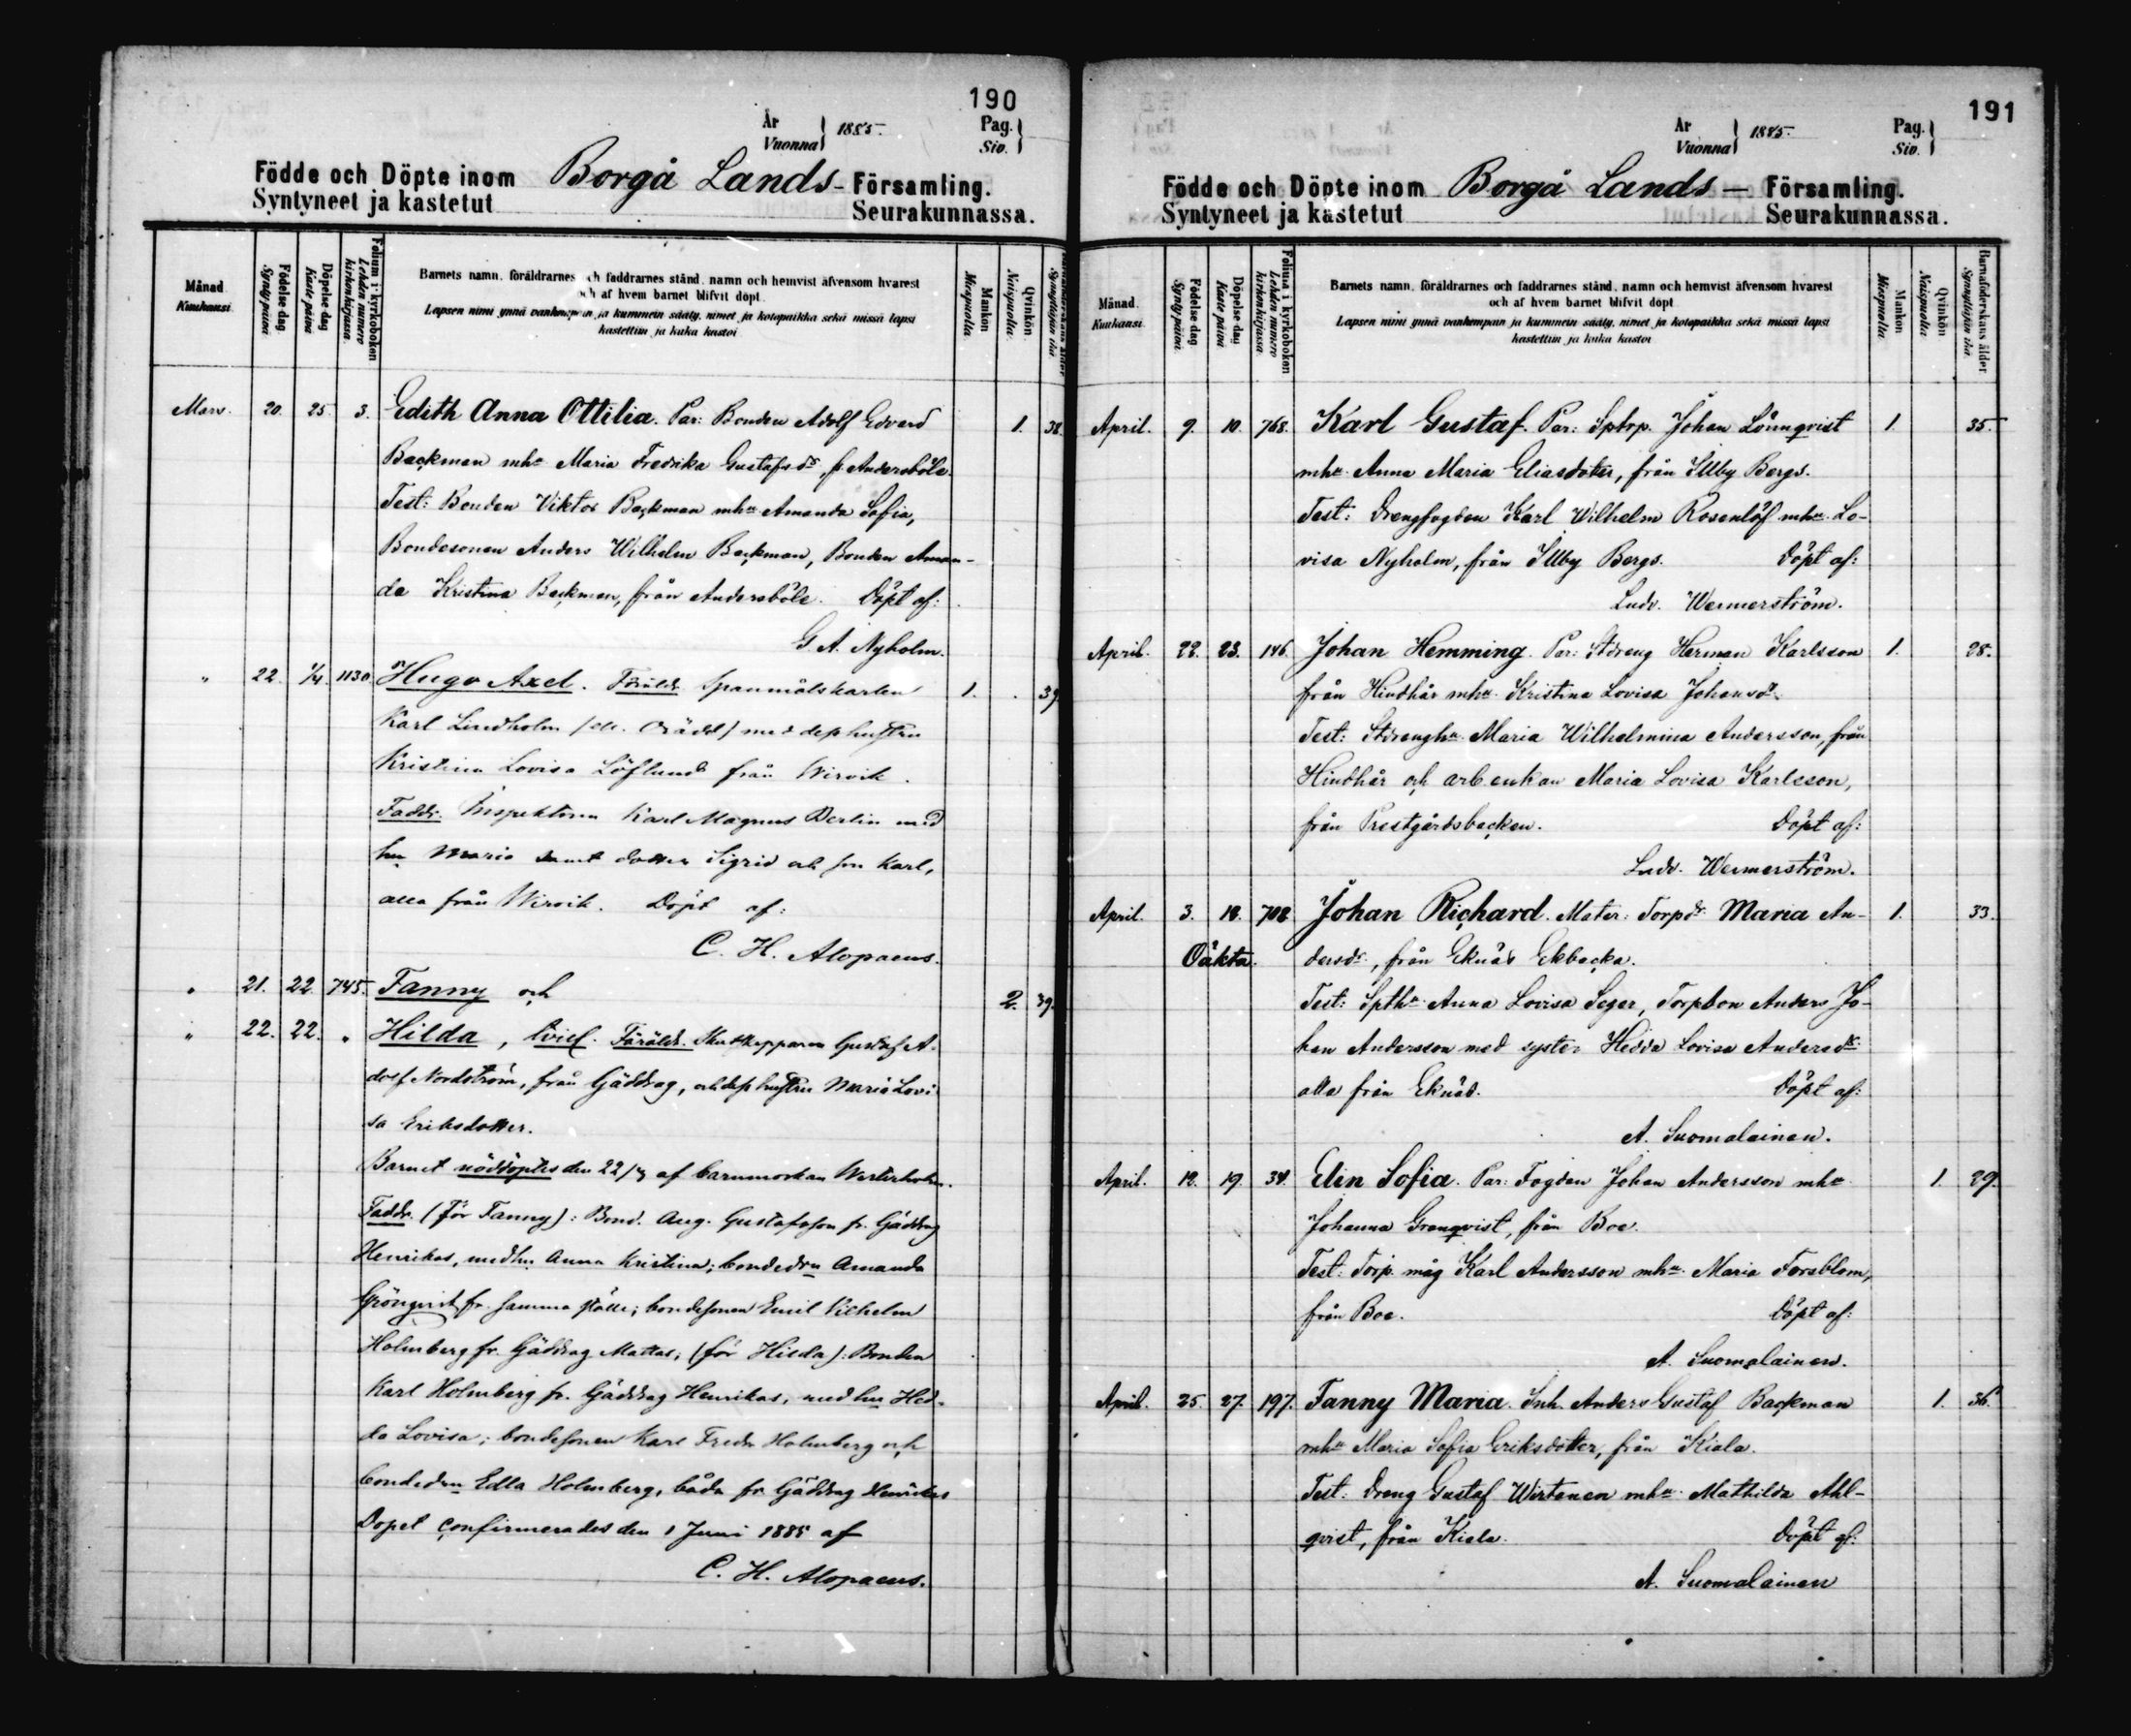 190
År
Vuonna } 1885.
Pag.
Siv.
Födde och Döpte inom Borgå Lands- Församling.
Syntyneet ja kastetut Seurakunnassa.
Månad Kuukausi
Födelse dag Synty päivä
Döpelse dag Kaste päivä
Folium i kyrkoboken Lehden numero kirkonkirjassa.
Barnets namn, föräldrarnes och faddrarnes stånd, namn och hemvist äfvensom hvarest
och af hvem barnet blifvit döpt.
Lapsen nimi ynnä vanhempain ja kummein sääty, nimet ja kotopaikka sekä missä lapsi
kastettiin ja kuka kastoi
Mankön Miespuolta.
Qvinkön Naispuolta.
Mars. 20. 25. 3. Edith Anna Ottilia. Par: Bonden Adolf Edvard 1. 38.
Backman mhu Maria Fredrika Gustafsdr, fr. Andersböle.
Test: Bonden Viktor Backman mhu Amanda Sofia,
Bondesonen Anders Wilhelm Backman, Bonden Aman-
da Kristina Backman, från Andersböle. Döpt af:
G. A. Nyholm.
" 22. 1/4. 1130. Hugo Axel. Föräldr. Spanmålskarlen 1. 39.
Karl Lindholm med dess hustru
Kristina Lovisa Löflund från Wirvik.
Faddr. Inspektoren Karl Magnus Berlin med
hu Maria samt dotter Sigrid och son Karl,
alla från Wirvik. Döpt af:
C. H. Alopaeus.
" 21. 22. 745. Fanny och 2. 39.
" 22. 22. " Hilda, tvill. Föräldr. Skutskepparen Gustaf A-
dolf Nordström, från Gäddrag, och dess hustru Maria Lovi-
sa Eriksdotter.
Barnet nöddöptes den 22/3 af barnmorskan Westerholm.
Faddr. (för Fanny): Bond. Aug. Gustafsson fr. Gäddrag
Henrikas, med hu Anna Kristina; bondedrn Amanda
Grönqvist fr. samma ställe; bondesonen Emil Vilhelm
Holmberg fr. Gäddrag Mattas; (för Hilda): Bonden
Karl Holmberg fr. Gäddrag Henrikas, med hu Hed-
da Lovisa; bondesonen Karl Fredr. Holmberg och
bondedrn Edla Holmberg, båda fr. Gäddrag Henrikas
Dopet confirmerades den 1 Juni 1885 af
C. H. Alopaeus.
191
År
Vuonna } 1885.
Pag.
Siv.
Födde och Döpte inom Borgå Lands — Församling.
Syntyneet ja kastetut Seurakunnassa.
Månad. Kuukausi.
Födelse dag Synty päivä.
Döpelse dag Kaste päivä
Folium i kyrkoboken Lehden numero kirkonkirjassa.
Barnets namn, föräldrarnes och faddrarnes stånd, namn och hemvist äfvensom hvarest
och af hvem barnet blifvit döpt.
Lapsen nimi ynnä vanhempain ja kummein sääty, nimet ja kotopaikka sekä missä lapsi
kastettiin ja kuka kastoi
Mankön Miespuolta
Qvinkön Naispuolta
Barnaföderskans ålder Synnyttäjän ikä.
April. 9. 10. 768. Karl Gustaf. Par: Sptrp. Johan Lönnqvist 1. 35.
mhu Anna Maria Eliasdotter, från Illby Bergs.
Test: Drengfogden Karl Wilhelm Rosenlöf mhu Lo-
visa Nyholm, från Illby Bergs. Döpt af:
Ludv. Wennerström.
April. 22. 23. 146. Johan Hemming. Par: Stdreng Herman Karlsson 1. 28.
från Hindhår mhu Kristina Lovisa Johansdr.
Test: Stdrenghu Maria Wilhelmina Andersson, från
Hindhår och arb. enkan Maria Lovisa Karlsson,
från Prestgårdsbacken. Döpt af:
Ludv. Wennerström.
April. 3. 18. 708. Johan Richard. Mater: Torpdr. Maria An- 1. 33.
Oäkta. dersdr., från Eknäs Ekbacka.
Test: Spthu Anna Lovisa Seger, Torpson Anders Jo-
han Andersson med syster Hedda Lovisa Andersdr.
alla från Eknäs. Döpt af:
A. Suomalainen.
April. 12. 19. 34. Elin Sofia. Par: Fogden Johan Andersson mhu 1. 29.
Johanna Granqvist, från Boe.
Test: Torp. måg Karl Andersson mhu Maria Forsblom,
från Boe. Döpt af:
A. Suomalainen.
April. 25. 27. 197. Fanny Maria. Inh. Anders Gustaf Backman 1. 36.
mhu Maria Sofia Eriksdotter, från Kiala.
Test: Dreng Gustaf Wirtanen mhu Mathilda Ahl-
qvist, från Kiala. Döpt af:
A. Suomalainen